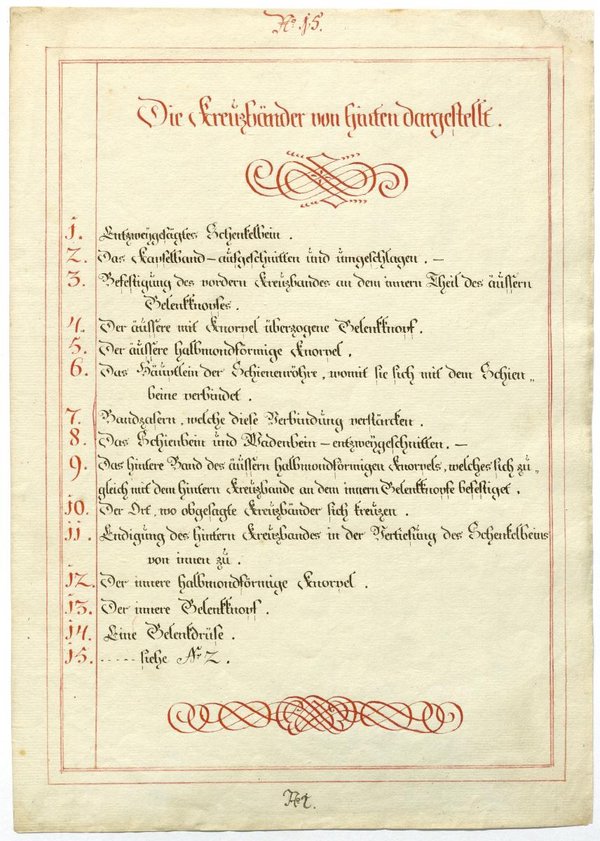 No. 15.
Die Kreuzbänder von hinten dargestellt.
1. Entzweygsägtes Schenkelbein.
2. Das Kapselband – aufgeschnitten und umgeschlagen. –
3. Befestigung des vordern Kreuzbandes an dem innern Theil des äussern
Gelenkknopfes.
4. Der äussere mit Knorpel überzogene Gelenkknopf.
5. Der äussere halbmondförmige Knorpel.
6. Das Häuptlein der Schienenröhre, womit sie sich mit dem Schien„
beine verbindet.
7. Bandzasern, welche diese Verbindung verstärcken.
8. Das Schienbein und Wadenbein – entzweygeschnitten. –
9. Das hintere Band des äussern halbmondförmigen Knorpels, welches sich zu„
gleich mit dem hintern Kreuzbande an dem innern Gelenkknopfe befestiget.
10. Der Ort, wo obgesagte Kreuzbänder sich kreuzen.
11. Endigung des hintern Kreuzbandes in der Vertiefung des Schenkelbeins
von innen zu.
12. Der innere halbmondförmige Knorpel.
13. Der innere Gelenkknopf.
14. Eine Gelenkdrüse.
15. ..... siehe No. 2.